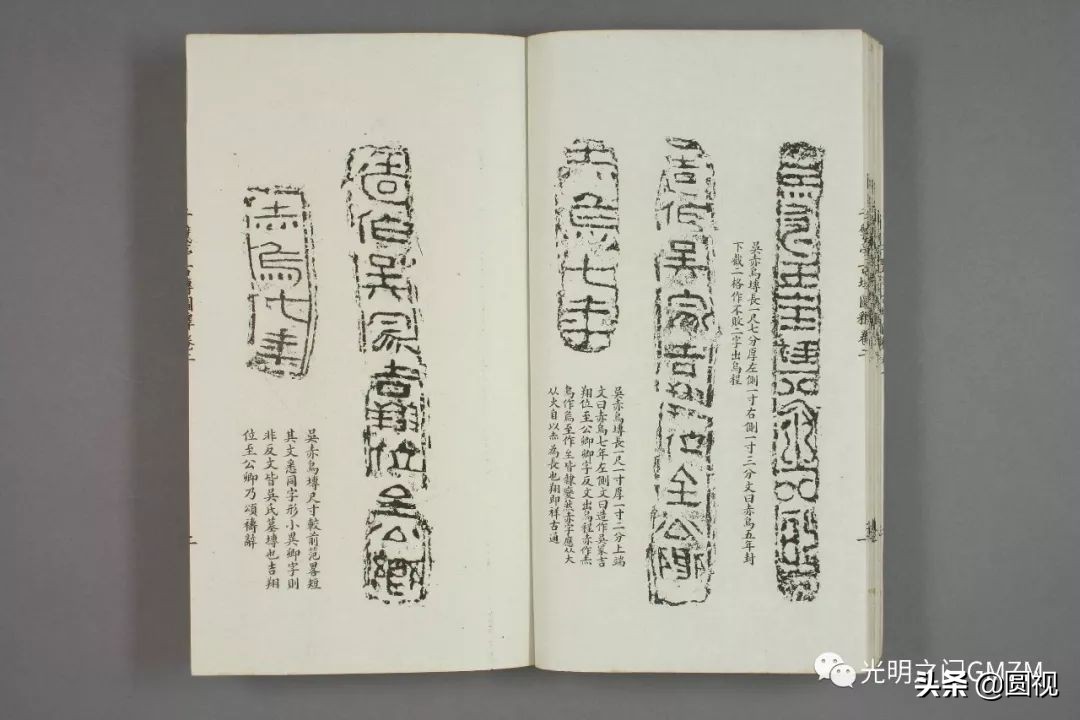 吳赤烏塼長一尺七分厚左側一寸右側一寸三分文曰赤烏五年封
下截二格作不敗二字出烏程
造作吳冢吉翔位至公卿
赤烏七年
吳赤烏塼長一尺一寸厚一寸二分上端
文曰赤烏七年左側文曰造作吳冢吉
翔位至公卿卿字反文出烏程赤作
烏作至作皆隸變然赤字應从大
从火自以為長也翔即祥古通
造作吳冢吉翔位至公卿
赤烏七年
吳赤烏塼尺寸較前范畧短
其文悉同字形小異卿字則
非反文皆吳氏墓塼也吉翔
位至公卿乃頌禱辭
光明之门GMZM
头条 @圆视